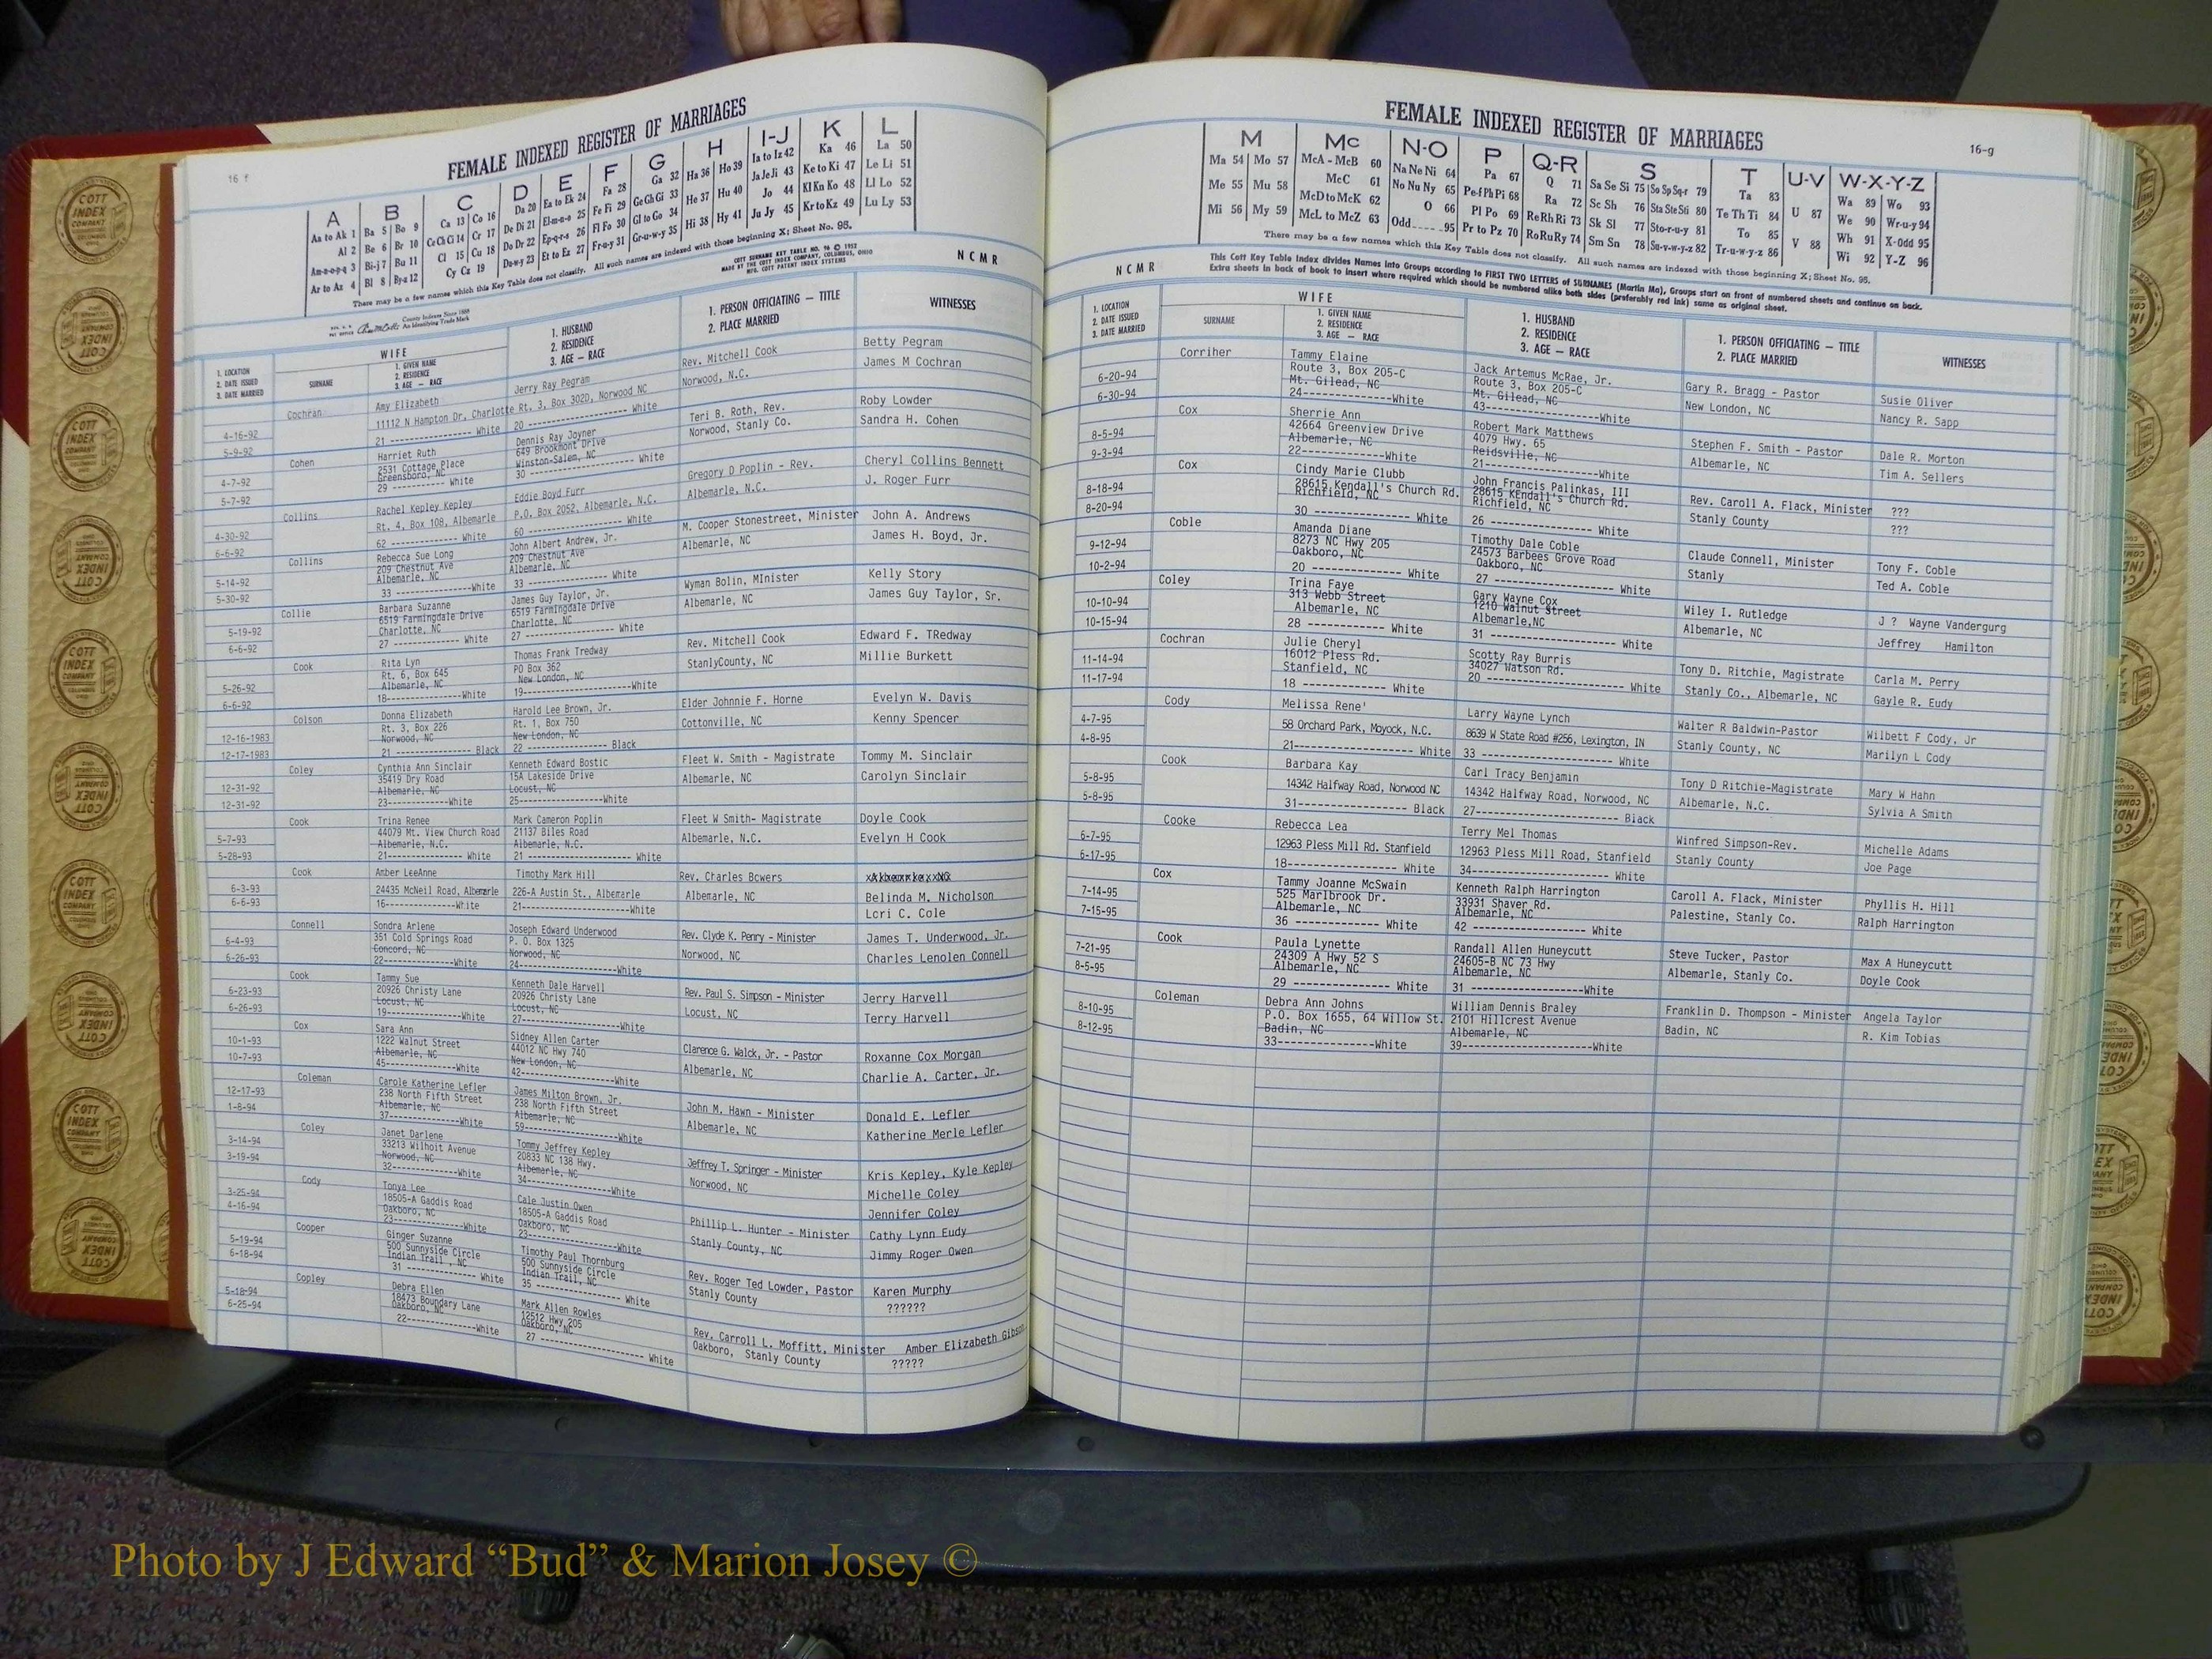 16 f
FEMALE INDEXED REGISTER OF MARRIAGES
A B C D E F G H I-J K L
Aa to Ak 1 Ba 5 Bo 9 Ca 13 Co 16 Da 20 Ea to Ek 24 Fa 28 Ga 32 Ha 36 Ho 39 Ia to Iz 42 Ka 46 La 50
Al 2 Be 6 Br 10 Ce Ch Ci 14 Cr 17 De Di 21 El-m-n-o 25 Fe Fi 29 Ge Gh Gi 33 He 37 Hu 40 Ja Je Ji 43 Ke to Ki 47 Le Li 51
Am-n-o-p-q 3 Bi-j 7 Bu 11 Cl 15 Cu 18 Do Dr 22 Ep-q-r-s 26 Fl Fo 30 Gl to Go 34 Hi 38 Hy 41 Jo 44 Kl Kn Ko 48 Ll Lo 52
Ar to Az 4 Bl 8 By-z 12 Cy Cz 19 Du-w-y 23 Et to Ez 27 Fr-u-y 31 Gr-u-w-y 35 Ju Jy 45 Kr to Kz 49 Lu Ly 53
There may be a few names which this Key Table does not classify. All such names are indexed with those beginning X; Sheet No. 95.
COTT SURNAME KEY TABLE NO. 96 © 1952
MADE BY THE COTT INDEX COMPANY, COLUMBUS, OHIO
MFG. COTT PATENT INDEX SYSTEMS
County Indexes Since 1888
An Identifying Trade Mark
N C M R
1. LOCATION
2. DATE ISSUED
3. DATE MARRIED
WIFE
SURNAME
1. GIVEN NAME
2. RESIDENCE
3. AGE — RACE
1. HUSBAND
2. RESIDENCE
3. AGE — RACE
1. PERSON OFFICIATING — TITLE
2. PLACE MARRIED
WITNESSES
Cochran Amy Elizabeth Jerry Ray Pegram Rev. Mitchell Cook Betty Pegram
4-16-92 11112 N Hampton Dr, Charlotte Rt. 3, Box 302D, Norwood NC Norwood, N.C. James M Cochran
5-9-92 21 ---------------- White 20 ---------------- White
Cohen Harriet Ruth Dennis Ray Joyner Teri B. Roth, Rev. Roby Lowder
4-7-92 2531 Cottage Place 649 Brookmont Drive Norwood, Stanly Co. Sandra H. Cohen
Greensboro, NC Winston-Salem, NC
5-7-92 29 ----------- White 30 ---------------- White
Collins Rachel Kepley Kepley Eddie Boyd Furr Gregory D Poplin - Rev. Cheryl Collins Bennett
4-30-92 Rt. 4, Box 108, Albemarle P.O. Box 2052, Albemarle, N.C. Albemarle, N.C. J. Roger Furr
6-6-92 62 ---------------- White 60 ---------------- White
Collins Rebecca Sue Long John Albert Andrew, Jr. M. Cooper Stonestreet, Minister John A. Andrews
5-14-92 209 Chestnut Ave 209 Chestnut Ave Albemarle, NC James H. Boyd, Jr.
Albemarle, NC Albemarle, NC
5-30-92 33 ----------------White 33 ---------------- White
Collie Barbara Suzanne James Guy Taylor, Jr. Wyman Bolin, MInister Kelly Story
5-19-92 6519 Farmingdale Drive 6519 Farmingdale Drive Albemarle, NC James Guy Taylor, Sr.
Charlotte, NC Charlotte, NC
6-6-92 27 ---------------- White 27 ---------------- White
Cook Rita Lyn Thomas Frank Tredway Rev. Mitchell Cook Edward F. TRedway
5-26-92 Rt. 6, Box 645 PO Box 362 StanlyCounty, NC Millie Burkett
Albemarle, NC New London, NC
6-6-92 18----------------White 19----------------White
Colson Donna Elizabeth Harold Lee Brown, Jr. Elder Johnnie F. Horne Evelyn W. Davis
12-16-1983 Rt. 3, Box 226 Rt. 1, Box 750 Cottonville, NC Kenny Spencer
Norwood, NC New London, NC
12-17-1983 21 ---------------- Black 22 ---------------- Black
Coley Cynthia Ann Sinclair Kenneth Edward Bostic Fleet W. Smith - Magistrate Tommy M. Sinclair
12-31-92 35419 Dry Road 15A Lakeside Drive Albemarle, NC Carolyn Sinclair
Albemarle, NC Locust, NC
12-31-92 23----------------White 25----------------White
Cook Trina Renee Mark Cameron Poplin Fleet W Smith- Magistrate Doyle Cook
5-7-93 44079 Mt. View Church Road 21137 Biles Road Albemarle, N.C. Evelyn H Cook
Albemarle, N.C. Albemarle, N.C.
5-28-93 21---------------- White 21 ---------------- White
Cook Amber LeeAnne Timothy Mark Hill Rev. Charles Bowers
6-3-93 24435 McNeil Road, Albemarle 226-A Austin St., Albemarle Albemarle, NC Belinda M. Nicholson
6-6-93 16----------------White 21----------------White Lori C. Cole
Connell Sondra Arlene Joseph Edward Underwood Rev. Clyde K. Penry - Minister James T. Underwood, Jr.
6-4-93 351 Cold Springs Road P. O. Box 1325 Norwood, NC Charles Lenolen Connell
Concord, NC Norwood, NC
6-26-93 22----------------White 24----------------White
Cook Tammy Sue Kenneth Dale Harvell Rev. Paul S. Simpson - Minister Jerry Harvell
6-23-93 20926 Christy Lane 20926 Christy Lane Locust, NC Terry Harvell
Locust, NC Locust, NC
6-26-93 19----------------White 27----------------White
Cox Sara Ann Sidney Allen Carter Clarence G. Walck, Jr. - Pastor Roxanne Cox Morgan
10-1-93 1222 Walnut Street 44012 NC Hwy 740 Albemarle, NC Charlie A. Carter, Jr.
Albemarle, NC New London, NC
10-7-93 45----------------White 42----------------White
Coleman Carole Katherine Lefler James Milton Brown, Jr. John M. Hawn - Minister Donald E. Lefler
12-17-93 238 North Fifth Street 238 North Fifth Street Albemarle, NC Katherine Merle Lefler
Albemarle, NC Albemarle, NC
1-8-94 37----------------White 59----------------White
Coley Janet Darlene Tommy Jeffrey Kepley Jeffrey T. Springer - Minister Kris Kepley, Kyle Kepley
3-14-94 33213 Wilhoit Avenue 20833 NC 138 Hwy. Norwood, NC Michelle Coley
Norwood, NC Albemarle, NC Jennifer Coley
3-19-94 32----------------White 34----------------White
Cody Tonya Lee Cale Justin Owen Phillip L. Hunter - Minister Cathy Lynn Eudy
3-25-94 18505-A Gaddis Road 18505-A Gaddis Road Stanly County, NC Jimmy Roger Owen
Oakboro, NC Oakboro, NC
4-16-94 23----------------White 23----------------White
Cooper Ginger Suzanne Timothy Paul Thornburg Rev. Roger Ted Lowder, Pastor Karen Murphy
5-19-94 500 Sunnyside Circle 500 Sunnyside Circle Stanly County ??????
Indian Trail , NC Indian Trail, NC
6-18-94 31 ---------------- White 35 ---------------- White
Copley Debra Ellen Mark Allen Rowles Rev. Carroll L. Moffitt, Minister Amber Elizabeth Gibson
5-18-94 18473 Boundary Lane 12512 Hwy 205 Oakboro, Stanly County ?????
Oakboro, NC Oakboro, NC
6-25-94 22----------------White 27 ---------------- White
FEMALE INDEXED REGISTER OF MARRIAGES
16-g
M Mc N-O P Q-R S T U-V W-X-Y-Z
Ma 54 Mo 57 McA - McB 60 Na Ne Ni 64 Pa 67 Q 71 Sa Se Si 75 So Sp Sq-r 79 Ta 83 U 87 Wa 89 Wo 93
Me 55 Mu 58 McC 61 No Nu Ny 65 Pe-f Ph Pi 68 Ra 72 Sc Sh 76 Sta Ste Sti 80 Te Th Ti 84 V 88 We 90 Wr-u-y 94
Mi 56 My 59 McD to McK 62 O 66 Pl Po 69 Re Rh Ri 73 Sk Sl 77 Sto-r-u-y 81 To 85 Wh 91 X-Odd 95
McL to McZ 63 Odd 95 Pr to Pz 70 Ro Ru Ry 74 Sm Sn 78 Su-v-w-y-z 82 Tr-u-w-y-z 86 Wi 92 Y-Z 96
There may be a few names which this Key Table does not classify. All such names are indexed with those beginning X; Sheet No. 95.
This Cott Key Table Index divides Names into Groups according to FIRST TWO LETTERS of SURNAMES (Martin Ma), Groups start on front of numbered sheets and continue on back.
Extra sheets in back of book to insert where required which should be numbered alike both sides (preferably red ink) same as original sheet.
N C M R
1. LOCATION
2. DATE ISSUED
3. DATE MARRIED
WIFE
SURNAME
1. GIVEN NAME
2. RESIDENCE
3. AGE — RACE
1. HUSBAND
2. RESIDENCE
3. AGE — RACE
1. PERSON OFFICIATING — TITLE
2. PLACE MARRIED
WITNESSES
Corriher Tammy Elaine Jack Artemus McRae, Jr. Gary R. Bragg - Pastor Susie Oliver
6-20-94 Route 3, Box 205-C Route 3, Box 205-C New London, NC Nancy R. Sapp
Mt. Gilead, NC Mt. Gilead, NC
6-30-94 24----------------White 43----------------White
Cox Sherrie Ann Robert Mark Matthews Stephen F. Smith - Pastor Dale R. Morton
8-5-94 42664 Greenview Drive 4079 Hwy. 65 Albemarle, NC Tim A. Sellers
Albemarle, NC Reidsville, NC
9-3-94 22----------------White 21----------------White
Cox Cindy Marie Clubb John Francis Palinkas, III Rev. Caroll A. Flack, Minister ???
8-18-94 28615 Kendall's Church Rd. 28615 KEndall's Church Rd. Stanly County ???
Richfield, NC Richfield, NC
8-20-94 30 ---------------- White 26 ---------------- White
Coble Amanda Diane Timothy Dale Coble Claude Connell, Minister Tony F. Coble
9-12-94 8273 NC Hwy 205 24573 Barbees Grove Road Stanly Ted A. Coble
Oakboro, NC Oakboro, NC
10-2-94 20 ---------------- White 27 ---------------- White
Coley Trina Faye Gary Wayne Cox Wiley I. Rutledge J ? Wayne Vandergurg
10-10-94 313 Webb Street 1210 Walnut Street Albemarle, NC Jeffrey Hamilton
Albemarle, NC Albemarle,NC
10-15-94 28 ---------------- White 31 ---------------- White
Cochran Julie Cheryl Scotty Ray Burris Tony D. Ritchie, Magistrate Carla M. Perry
11-14-94 16012 Pless Rd. 34027 Watson Rd. Stanly Co., Albemarle, NC Gayle R. Eudy
Stanfield, NC
11-17-94 18 ---------------- White 20 ---------------- White
Cody Melissa Rene' Larry Wayne Lynch Walter R Baldwin-Pastor Wilbett F Cody, Jr
4-7-95 58 Orchard Park, Moyock, N.C. 8639 W State Road #256, Lexington, IN Stanly County, NC Marilyn L Cody
4-8-95 21---------------- White 33 ---------------- White
Cook Barbara Kay Carl Tracy Benjamin Tony D Ritchie-Magistrate Mary W Hahn
5-8-95 14342 Halfway Road, Norwood NC 14342 Halfway Road, Norwood, NC Albemarle, N.C. Sylvia A Smith
5-8-95 31---------------- Black 27---------------- Black
Cooke Rebecca Lea Terry Mel Thomas Winfred Simpson-Rev. Michelle Adams
6-7-95 12963 Pless Mill Rd. Stanfield 12963 Pless Mill Road, Stanfield Stanly County Joe Page
6-17-95 18---------------- White 34---------------- White
Cox Tammy Joanne McSwain Kenneth Ralph Harrington Caroll A. Flack, Minister Phyllis H. Hill
7-14-95 525 Marlbrook Dr. 33931 Shaver Rd. Palestine, Stanly Co. Ralph Harrington
Albemarle, NC Albemarle, NC
7-15-95 36 ---------------- White 42 ---------------- White
Cook Paula Lynette Randall Allen Huneycutt Steve Tucker, Pastor Max A Huneycutt
7-21-95 24309 A Hwy 52 S 24605-B NC 73 Hwy Albemarle, Stanly Co. Doyle Cook
Albemarle, NC Albemarle, NC
8-5-95 29 ---------------- White 31 ----------------White
Coleman Debra Ann Johns William Dennis Braley Franklin D. Thompson - Minister Angela Taylor
8-10-95 P.O. Box 1655, 64 Willow St. 2101 Hillcrest Avenue Badin, NC R. Kim Tobias
Badin, NC Albemarle, NC
8-12-95 33----------------White 39----------------White
COTT INDEX COMPANY COLUMBUS OHIO
Photo by J Edward “Bud” & Marion Josey ©